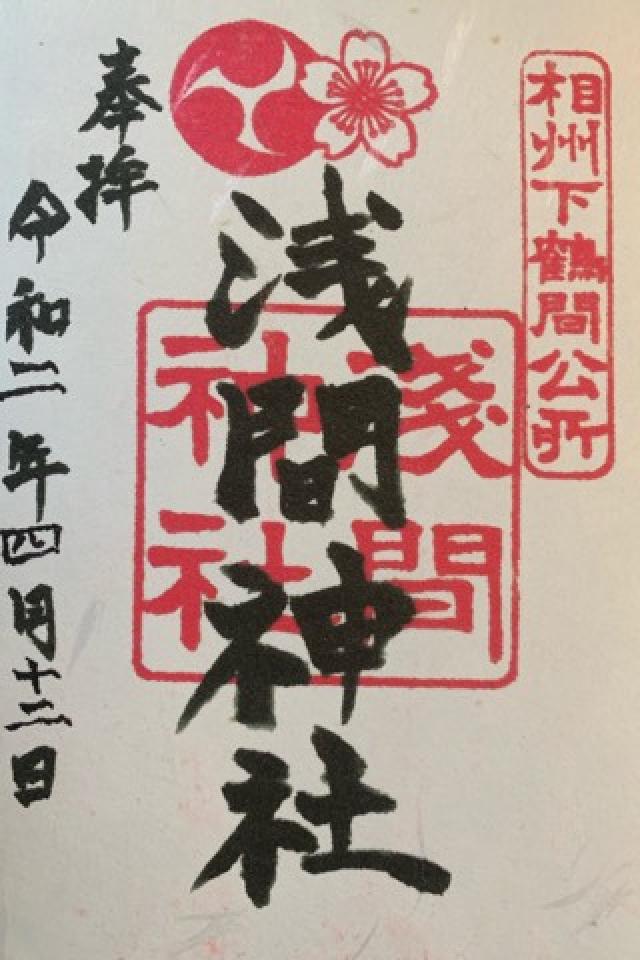 相州下鶴間公所
浅間神社
淺間
神社
奉拝
令和二年四月十二日